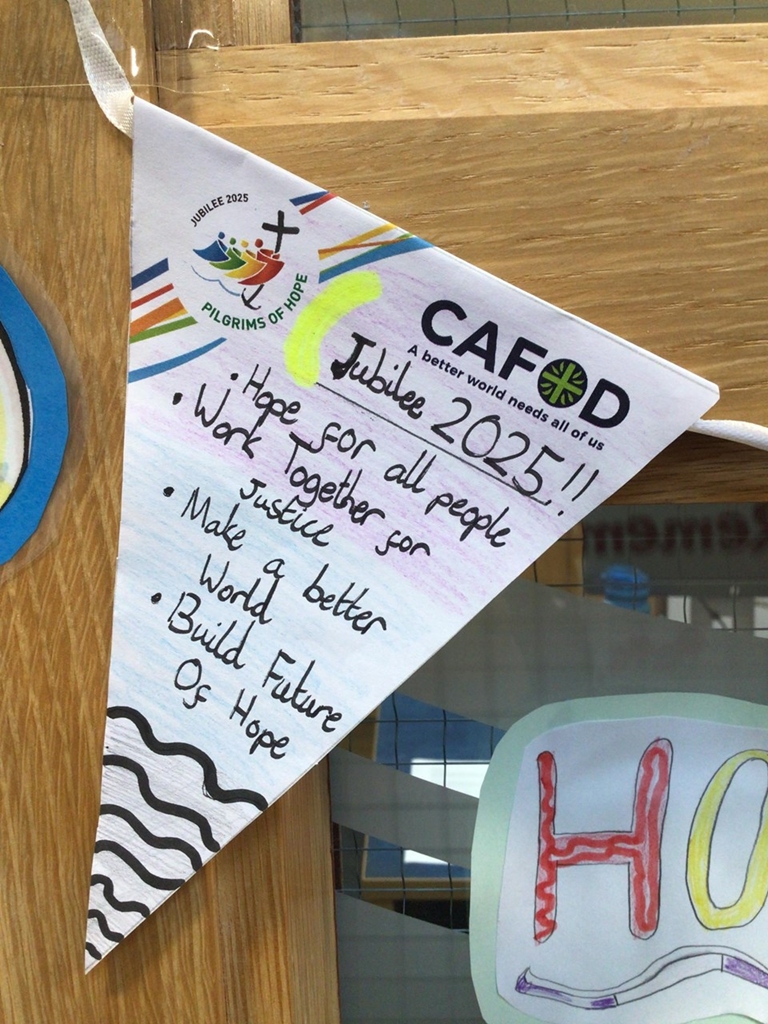 JUBILEE 2025
PILGRIMS OF HOPE
CAFOD
A better world needs all of us
Jubilee 2025!!
• Hope for all people
• Work Together for
Justice
• Make a better
World
• Build Future
Of Hope
Remem
HO